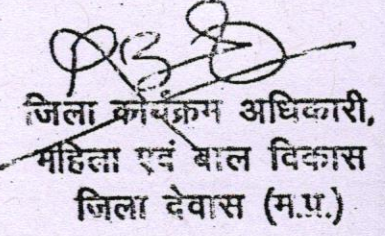 जिला कार्यक्रम अधिकारी,
महिला एवं बाल विकास
जिला देवास (म.प्र.)